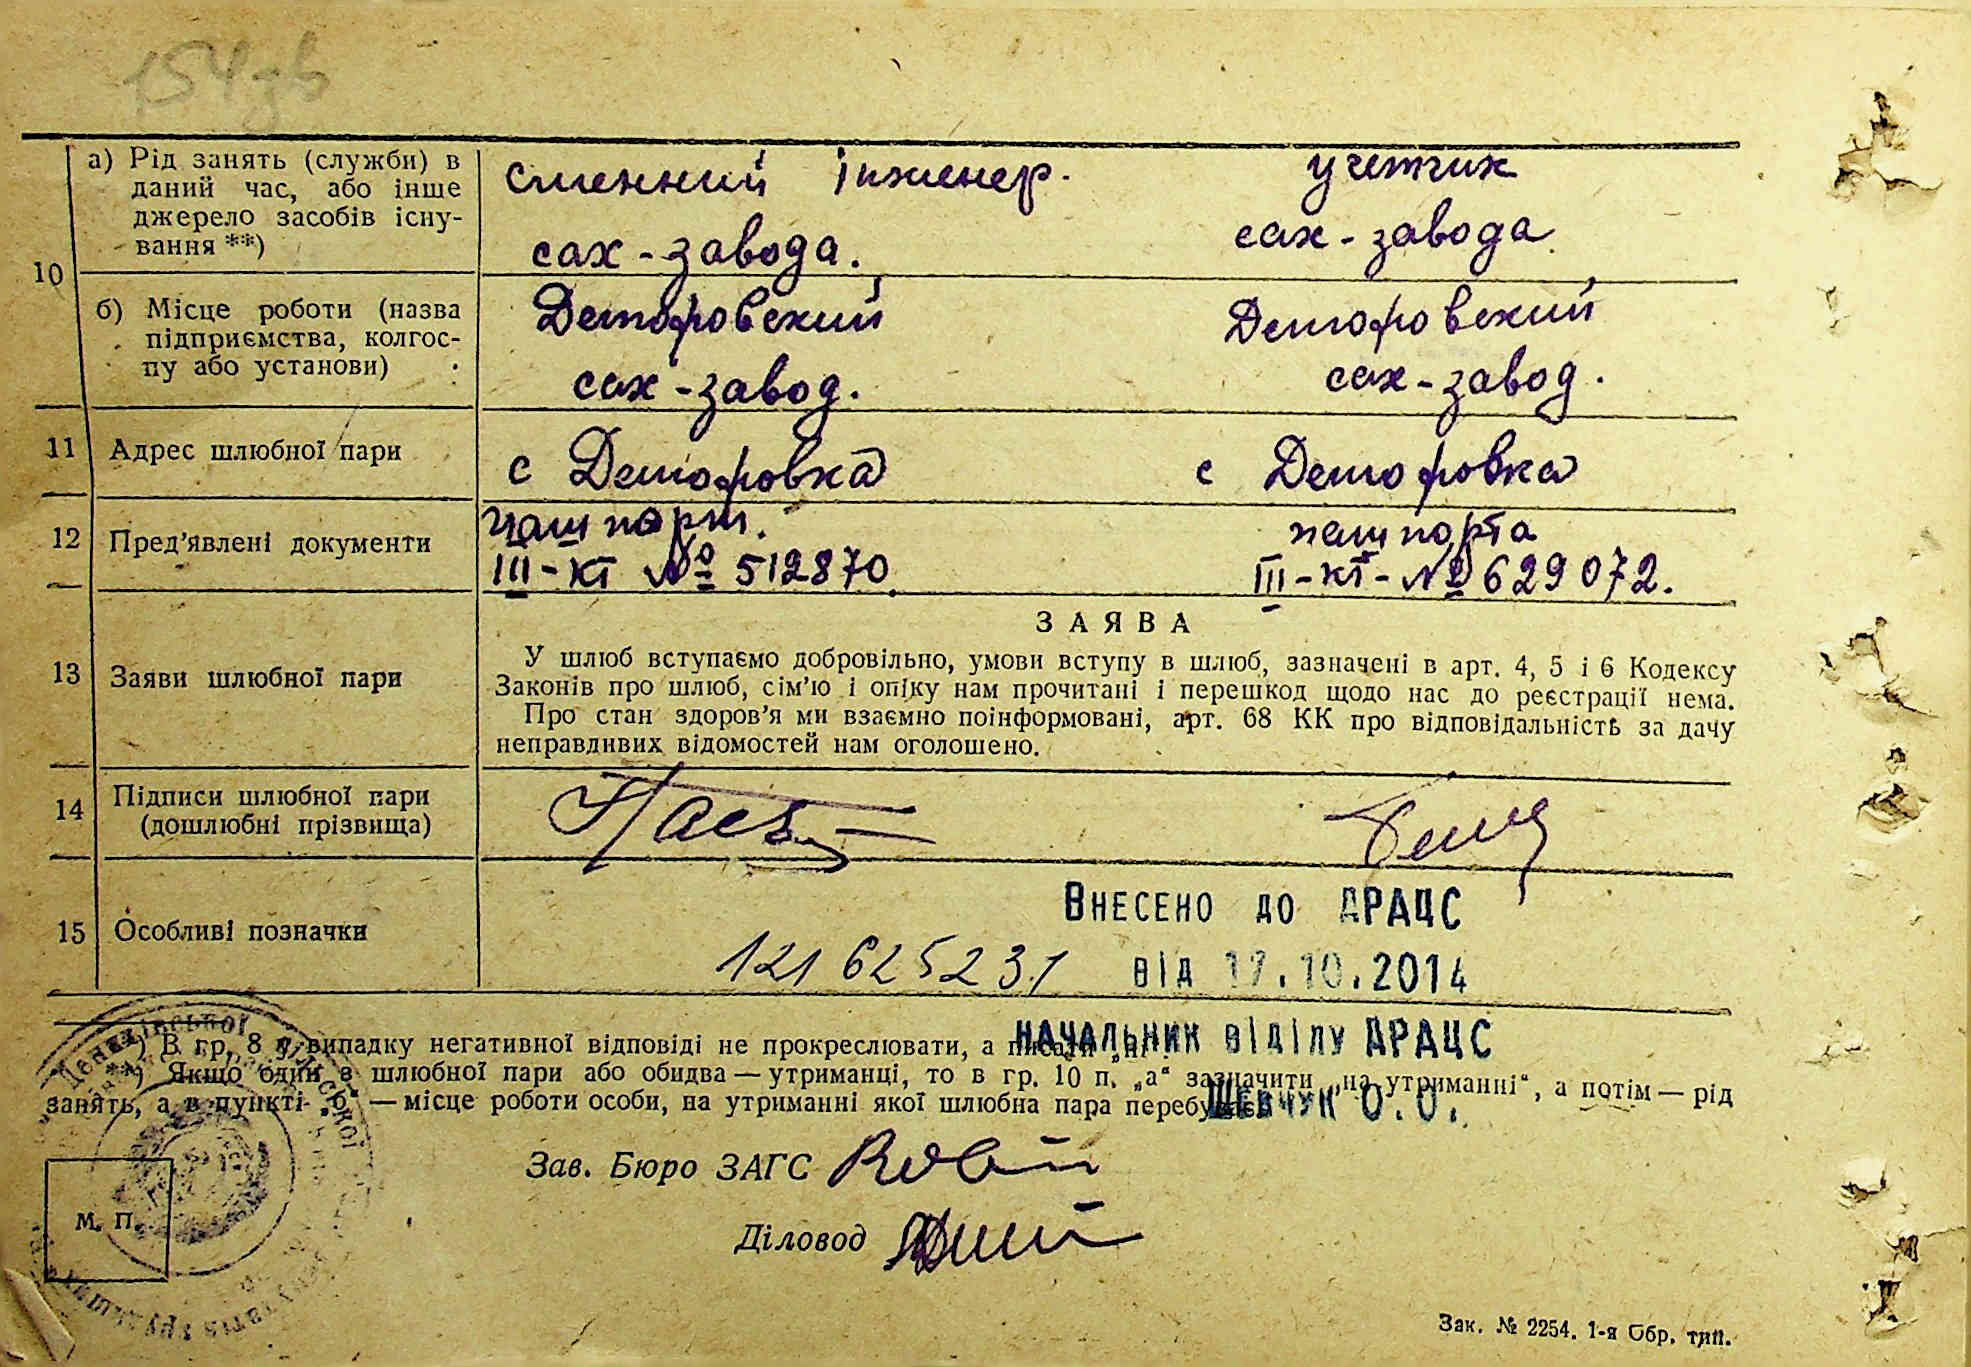 154 зв
а) Рід занять (служби) в
даний час, або інше
джерело засобів існу-
вання **)
сменний інженер.
сах-завода.
учетчик
сах-завода
10
б) Місце роботи (назва
підприємства, колгос-
пу або установи)
Деторовский
сах-завод.
Деторовский
сах-завод.
11 Адрес шлюбної пари
с Деторовка
с Деторовка
12 Пред'явлені документи
пашпорт.
III-КТ № 512870.
пашпорта
III-КТ-№ 629072.
13 Заяви шлюбної пари
ЗАЯВА
У шлюб вступаємо добровільно, умови вступу в шлюб, зазначені в арт. 4, 5 і 6 Кодексу
Законів про шлюб, сім'ю і опіку нам прочитані і перешкод щодо нас до реєстрації нема.
Про стан здоров'я ми взаємно поінформовані, арт. 68 КК про відповідальність за дачу
неправдивих відомостей нам оголошено.
14 Підписи шлюбної пари
(дошлюбні прізвища)
15 Особливі позначки
Внесено до ДРАЦС
12162523.1 від 17.10.2014
Начальник відділу ДРАЦС
Шевчук О.О.
*) В гр. 8 у випадку негативної відповіді не прокреслювати, а писати „ні“.
**) Якщо один з шлюбної пари або обидва — утриманці, то в гр. 10 п. „а“ зазначити „на утриманні“, а потім — рід
занять, а в пункті „б“ — місце роботи особи, на утриманні якої шлюбна пара перебуває.
Зав. Бюро ЗАГС
Діловод
М. П.
Зак. № 2254. 1-я Обр. тип.